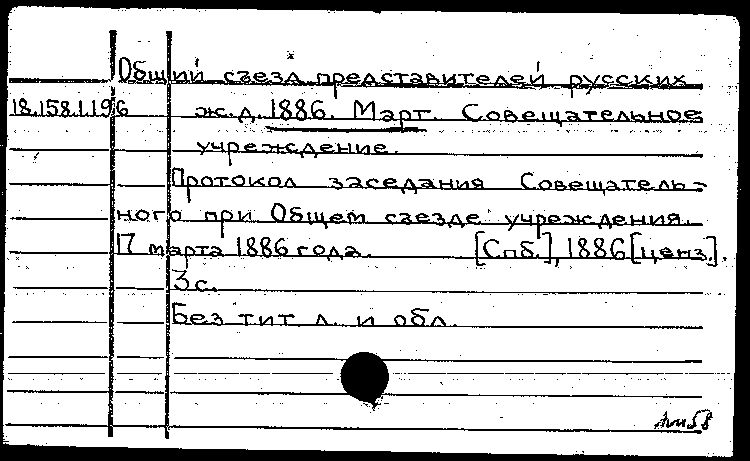 Общий съезд представителей русских
18.158.1.196 ж.д. 1886. Март. Совещательное
учреждение.
Протокол заседания Совещатель-
ного при Общем съезде учреждения.
17 марта 1886 года. [Спб.], 1886 [ценз.].
3 с.
Без тит. л. и обл.